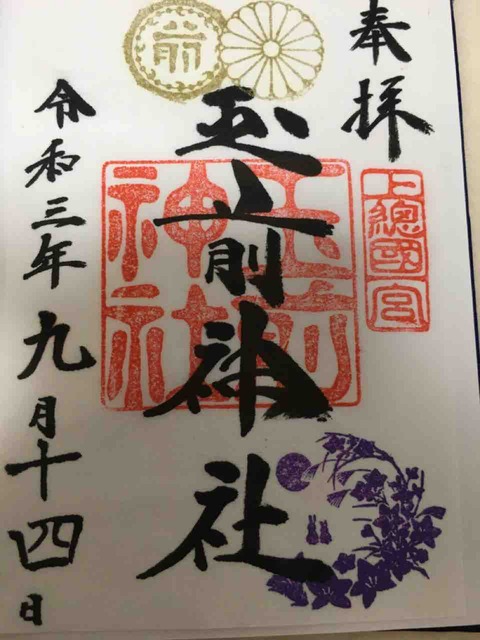 奉拝
上總國一宮
前
玉前神社
玉前神社
令和三年九月十四日